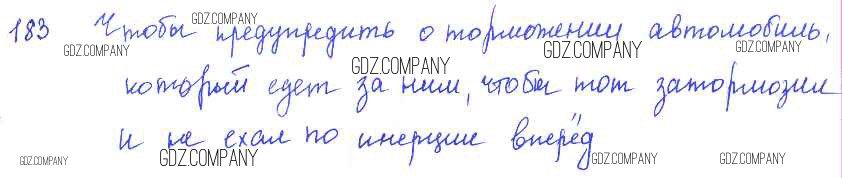 183 Чтобы предупредить о торможении автомобиль,
который едет за ним, чтобы тот затормозил
и не ехал по инерции вперёд
GDZ.COMPANY
GDZ.COMPANY
GDZ.COMPANY
GDZ.COMPANY
GDZ.COMPANY
GDZ.COMPANY
GDZ.COMPANY
GDZ.COMPANY
GDZ.COMPANY
GDZ.COMPANY